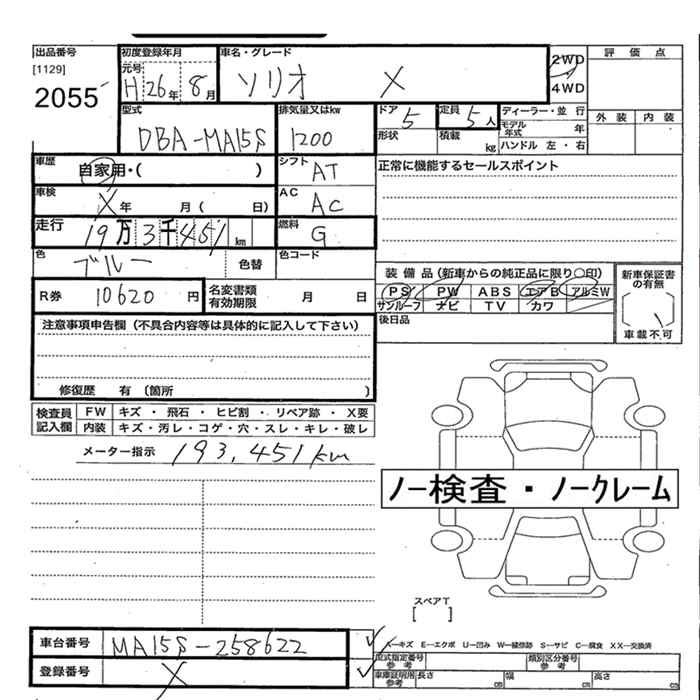 出品番号 初度登録年月 車名・グレード 2WD 評価点
[1129] 元号 4WD
2055 H 26年 8月 ソリオ X
型式 排気量又はkw ドア 5 定員 5人 ディーラー・並行 外装 内装
DBA-MA15S 1200 形状 積載 kg モデル年式 年
ハンドル 左・右
車歴 自家用・( ) シフト AT 正常に機能するセールスポイント
車検 X年 月( 日) AC AC
走行 19万3千451km 燃料 G
色 ブルー 色替 色コード
装備品(新車からの純正品に限り○印) 新車保証書の有無
R券 10620円 名変書類有効期限 月 日 PS PW ABS エアB アルミW
サンルーフ ナビ TV カワ
[ ]
車載不可
後日品
注意事項申告欄(不具合内容等は具体的に記入して下さい)
修復歴 有(箇所 )
検査員記入欄 FW キズ・飛石・ヒビ割・リペア跡・X要
内装 キズ・汚レ・コゲ・穴・スレ・キレ・破レ
メーター指示 193,451km
ノー検査・ノークレーム
スペアT
[ ]
車台番号 MA15S-258622
A—キズ E—エクボ U—凹み W—補修跡 S—サビ C—腐食 XX—交換済
登録番号 X
型式指定番号参考 類別区分番号参考
車庫証明用参考 長さ cm 幅 cm 高さ cm